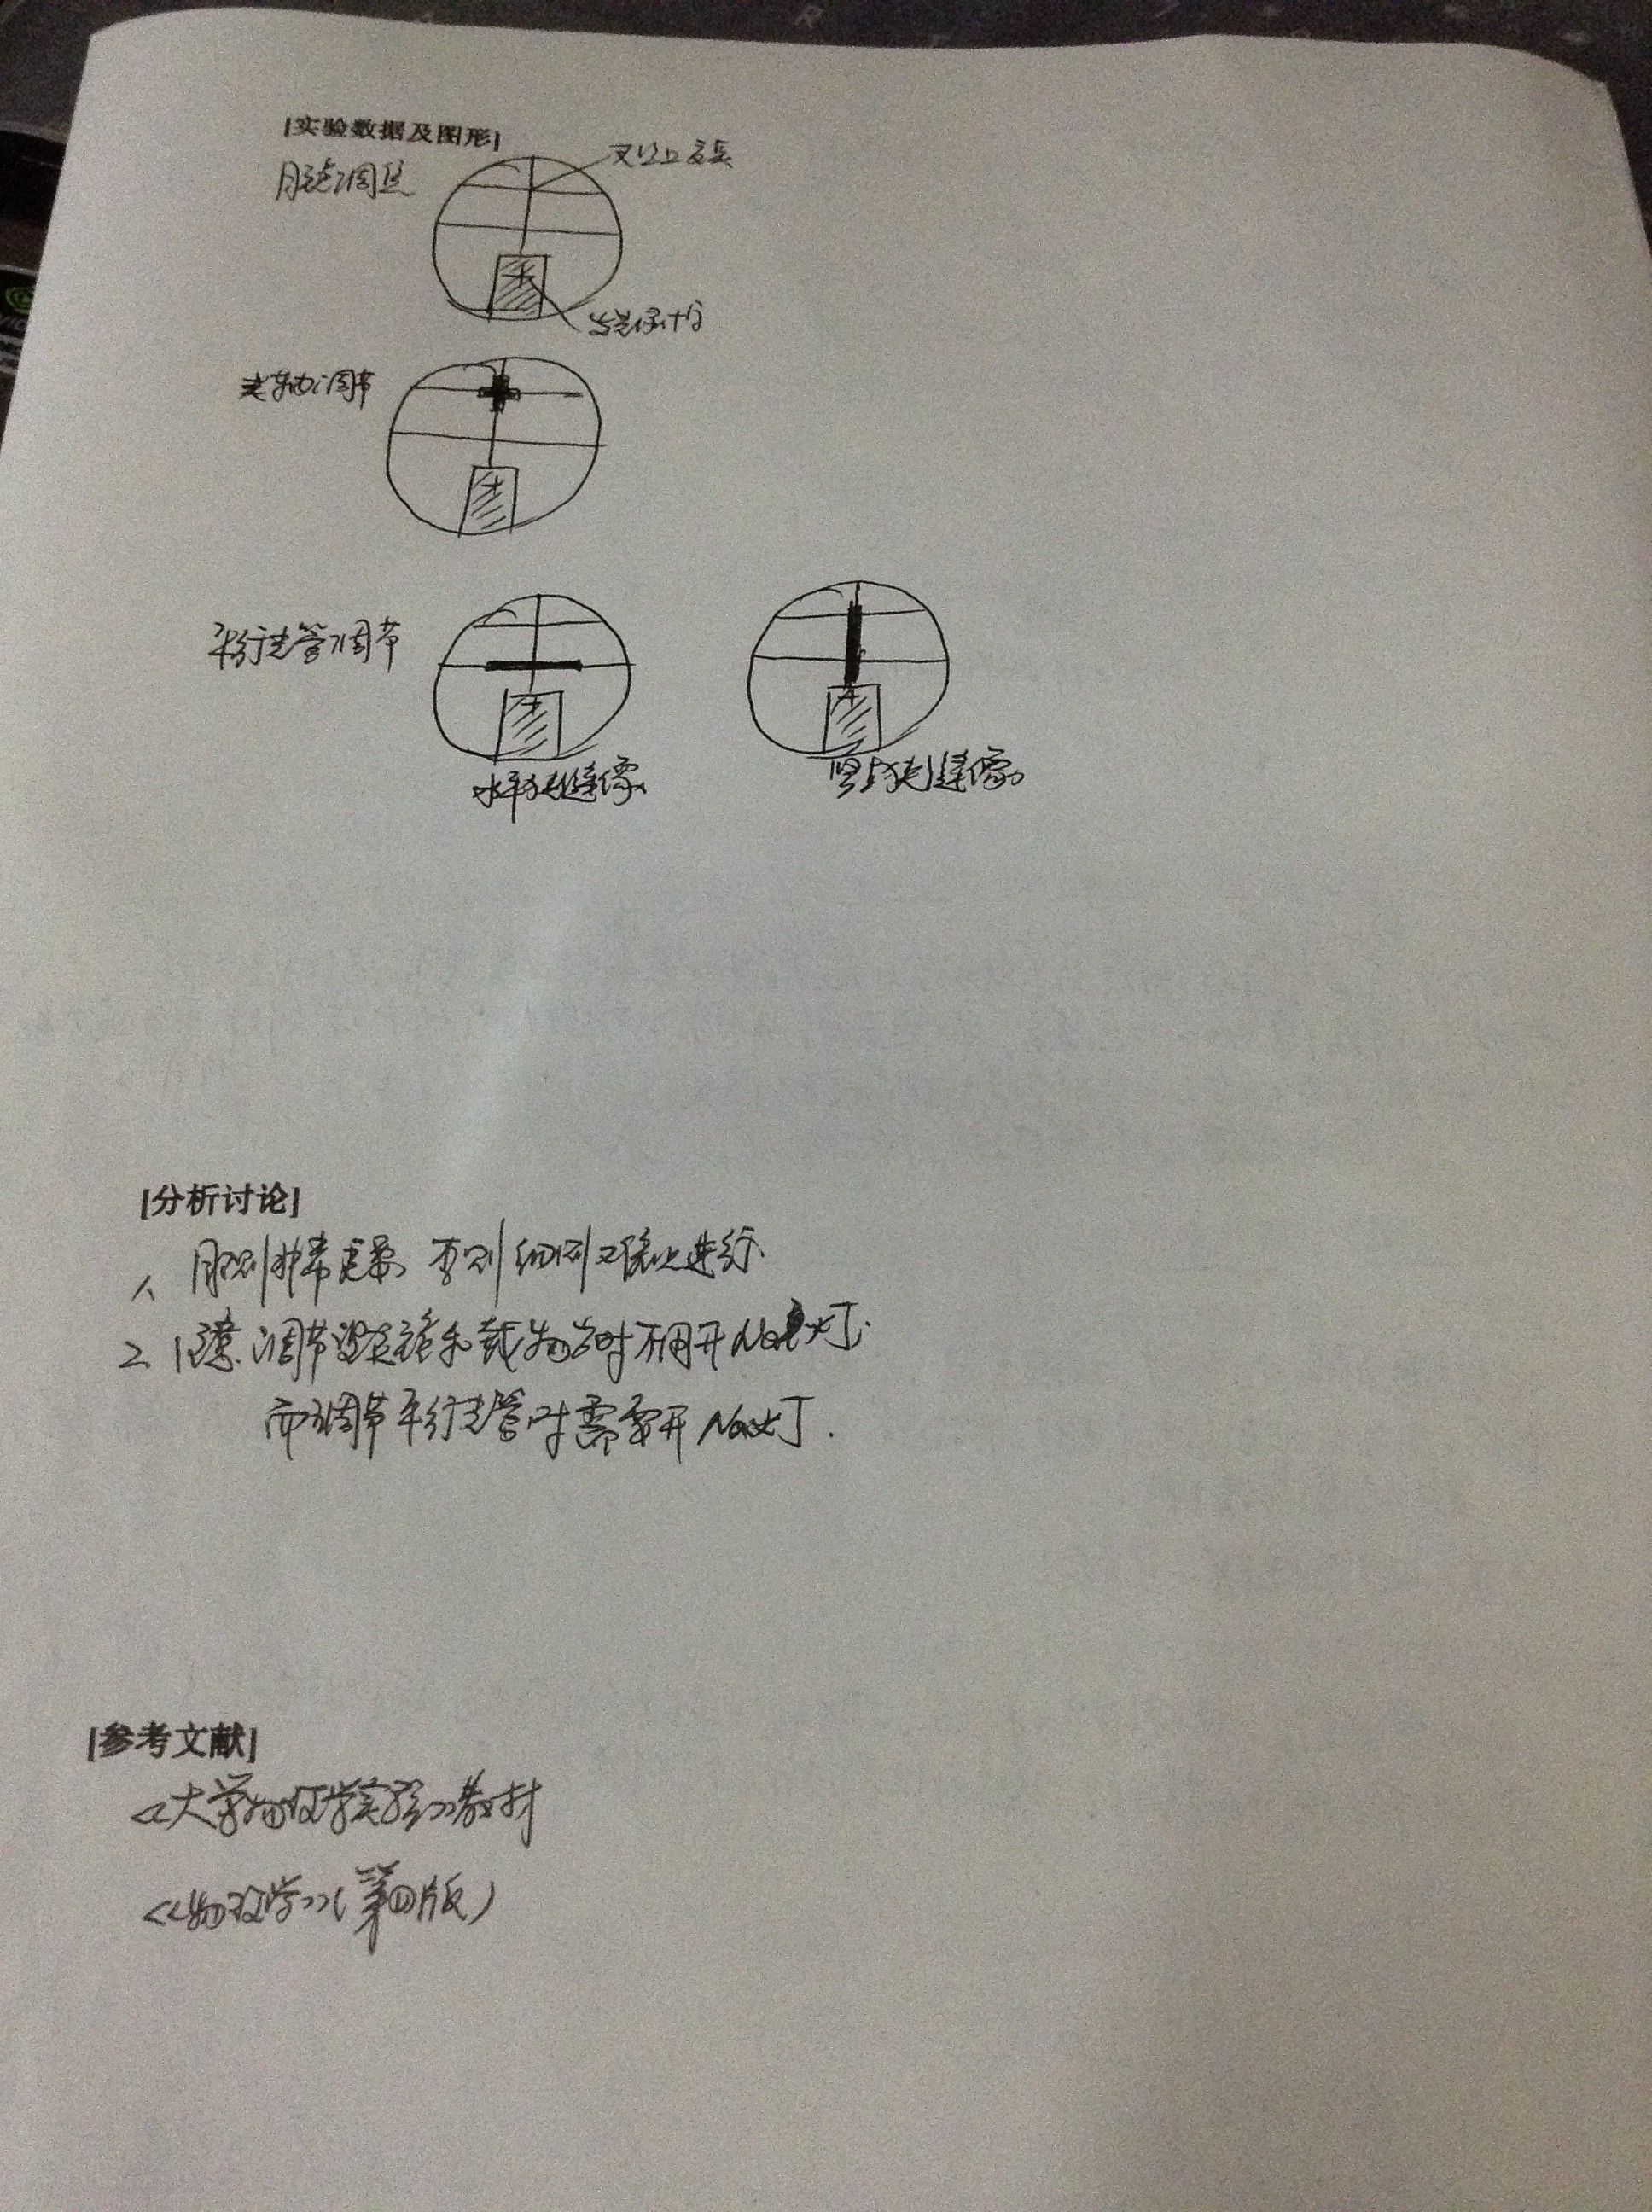 [实验数据及图形]
目镜调焦
叉丝上交点
光轴调节
平行光管调节
水平狭缝像
竖直狭缝像
[分析讨论]
1、目测非常重要 否则细测难以进行
2、注意:调节望远镜和载物台时不用开Na灯.
而调节平行光管时需要开Na灯.
[参考文献]
《大学物理学实验》教材
《物理学》(第四版)